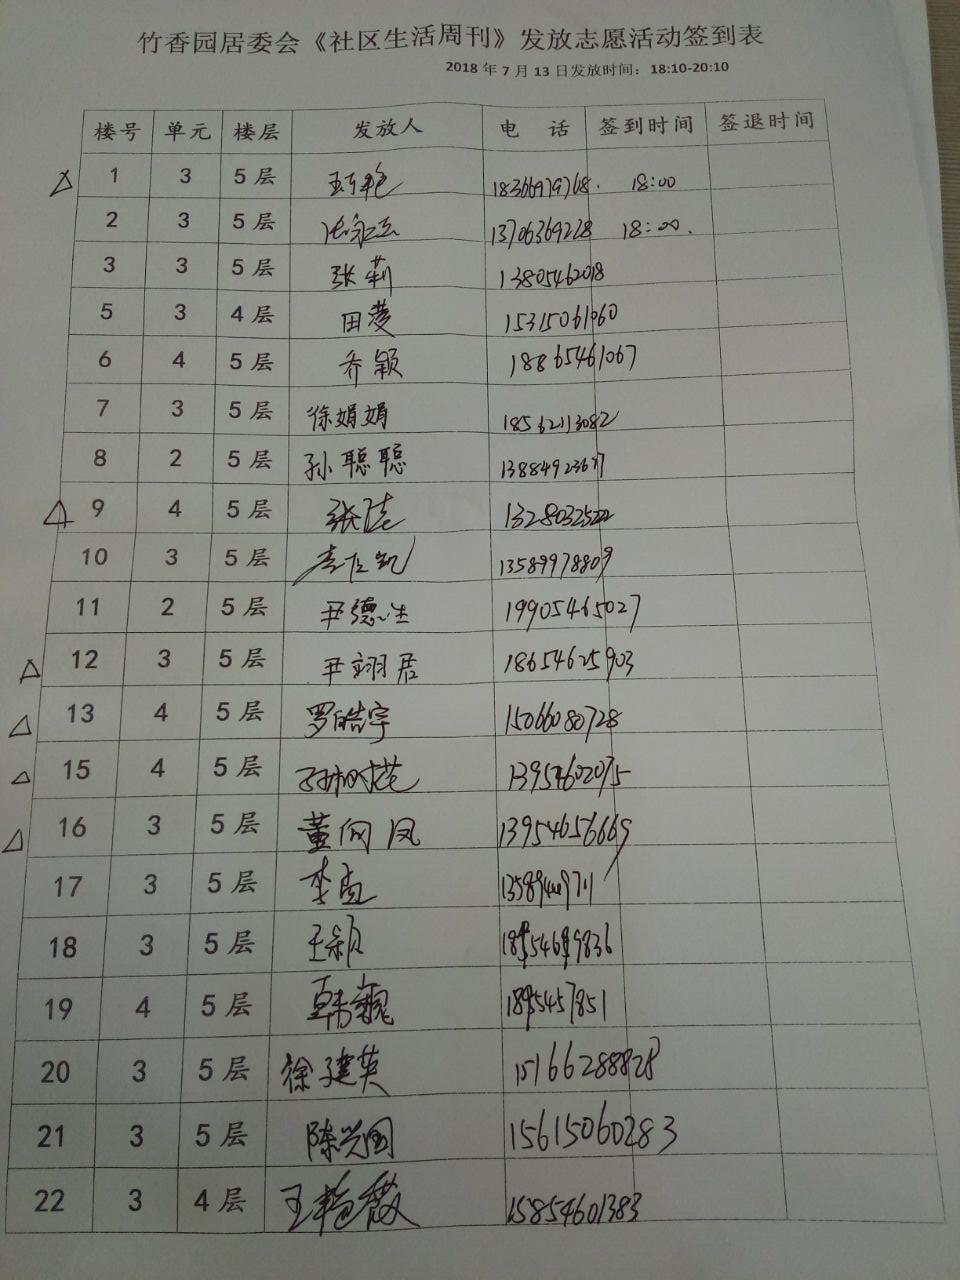 竹香园居委会《社区生活周刊》发放志愿活动签到表
2018 年 7 月 13 日发放时间：18:10-20:10
楼号 单元 楼层 发放人 电 话 签到时间 签退时间
1 3 5 层 18366979768. 18:00
2 3 5 层 13706369228 18:00.
3 3 5 层 张莉 13805462018
5 3 4 层 田 15315061060
6 4 5 层 乔颖 18865461067
7 3 5 层 徐娟娟 18562113082
8 2 5 层 孙聪聪
9 4 5 层 张 13280325222
10 3 5 层 13589978809
11 2 5 层 尹德 19905465027
12 3 5 层 尹翊君 18654625903
13 4 5 层 罗皓宇 15066080728
15 4 5 层 13954602075
16 3 5 层 董向凤 13954656669
17 3 5 层 李
18 3 5 层 王颖
19 4 5 层 韩巍
20 3 5 层 徐建英 15166288828
21 3 5 层 陈兴国 15615060283
22 3 4 层 王艳薇 15854601383